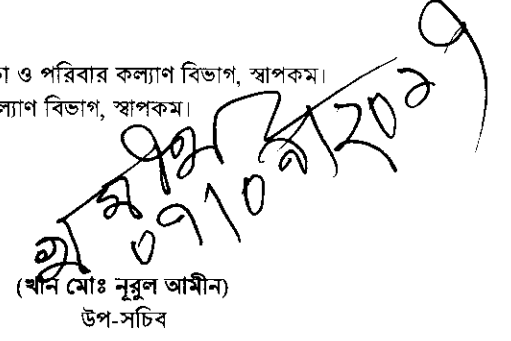 ও পরিবার কল্যাণ বিভাগ, স্বাপকম।
কল্যাণ বিভাগ, স্বাপকম।
(খান মোঃ নূরুল আমীন)
উপ-সচিব